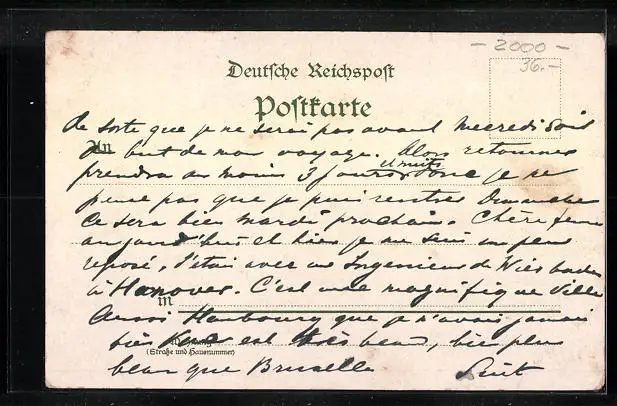 - 2000 -
36.-
Deutsche Reichspost
Postkarte
de sorte que je ne serai pas avant mecredi soir
An
au but de mon voyage. Alors retourner
prendra au moins 3 jours et nuits donc je ne
pense pas que je puis rentrer Dimanche
ce sera bien mardi prochain. Chère femme
aujourd'hui et hier je me suis un peu
reposé, j'étais avec un Ingenieur de Wiesbaden
à Hanovre. C'est une magnifique ville
in
aussi Hambourg que je n'avais jamais
est très beau, bien plus
(Straße und Hausnummer)
beau que Bruxelles